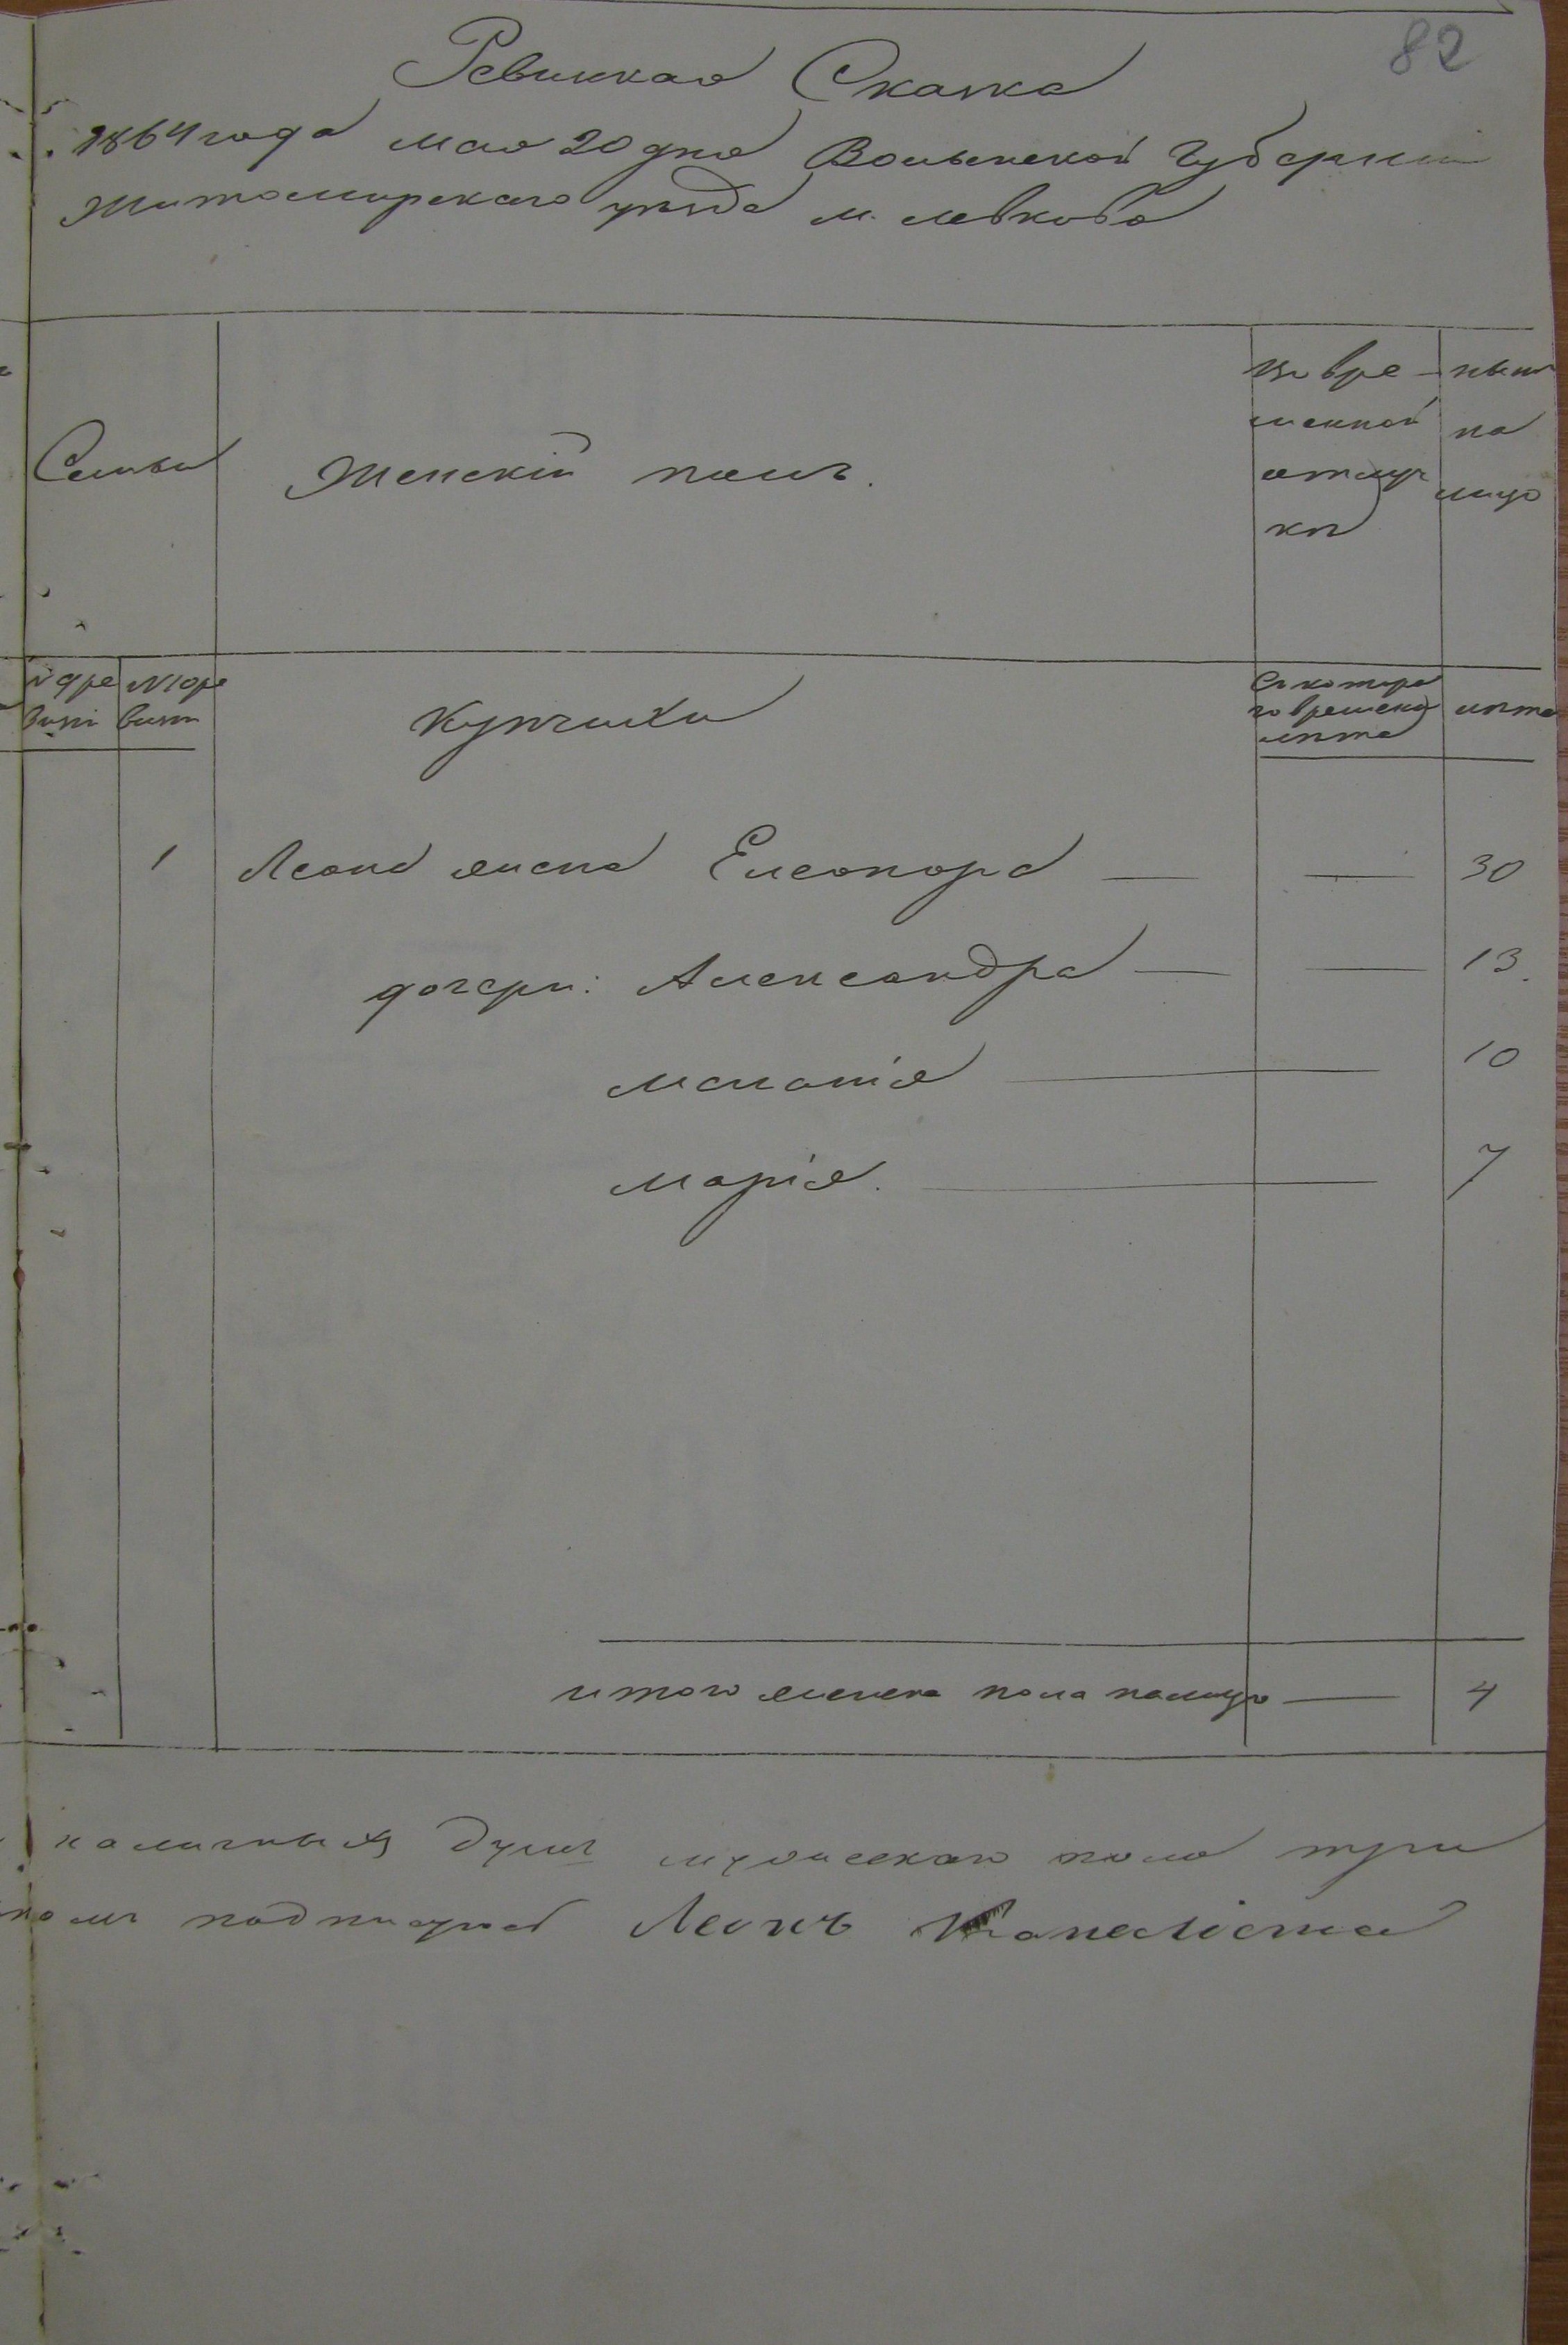 82
Ревизская Сказка
1864 года мая 20 дня Волынской Губерніи
Житомирского уѣзда м. Левкова
Семьи
Женскій полъ.
во вре-
менной
отлуч
кѣ
нынѣ
на
лицо
реви
№ 10 ре
визіи
Купчихи
Съ которо
го времени
лѣта
1 Леона жена Елеонора — — 30
дочери: Александра — — 13.
Меланія — 10
Марія. — 7
Итого женска пола налицо — 4
наличныхъ душъ мужеска пола три
подписуюсь Леонъ